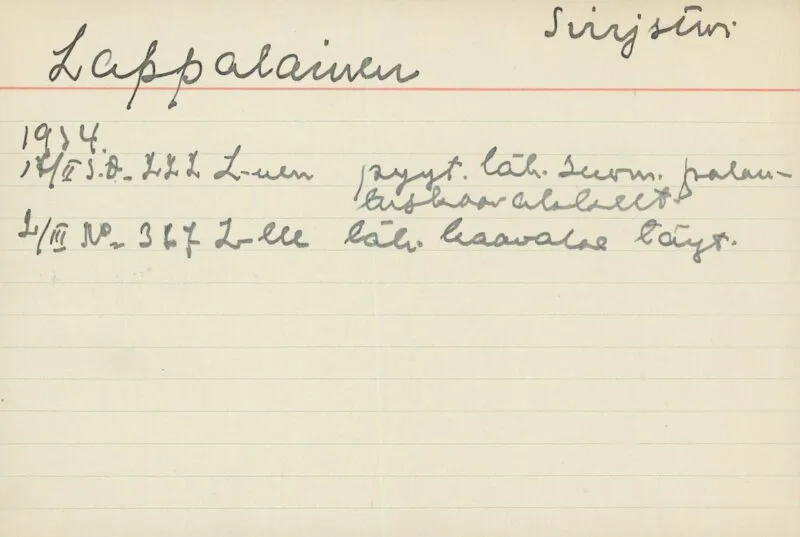 Lappalainen
1934.
17/II S.D. 222 L-nen pyyt. läh. Suom. palau-
tuskaavakkeet.
2/III No. 367 L-lle läh. kaavake täyt.